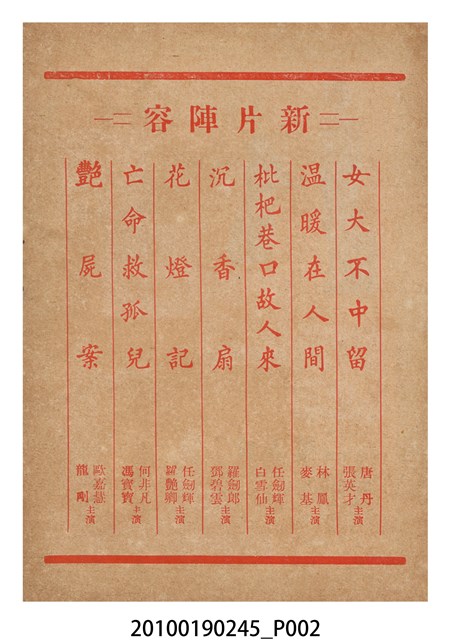 新片陣容
女大不中留
唐丹
張英才
主演
温暖在人間
林鳳
麥基
主演
枇杷巷口故人來
任劍輝
白雪仙
主演
沉香扇
羅劍郎
鄧碧雲
主演
花燈記
任劍輝
羅艷卿
主演
亡命救孤兒
何非凡
馮寶寶
主演
艷屍案
歐嘉慧
龍剛
主演
20100190245_P002